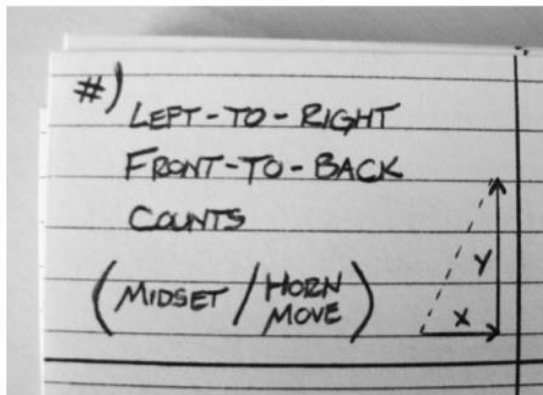 #)
LEFT-TO-RIGHT
FRONT-TO-BACK
COUNTS
(MIDSET / HORN
MOVE)
Y
X